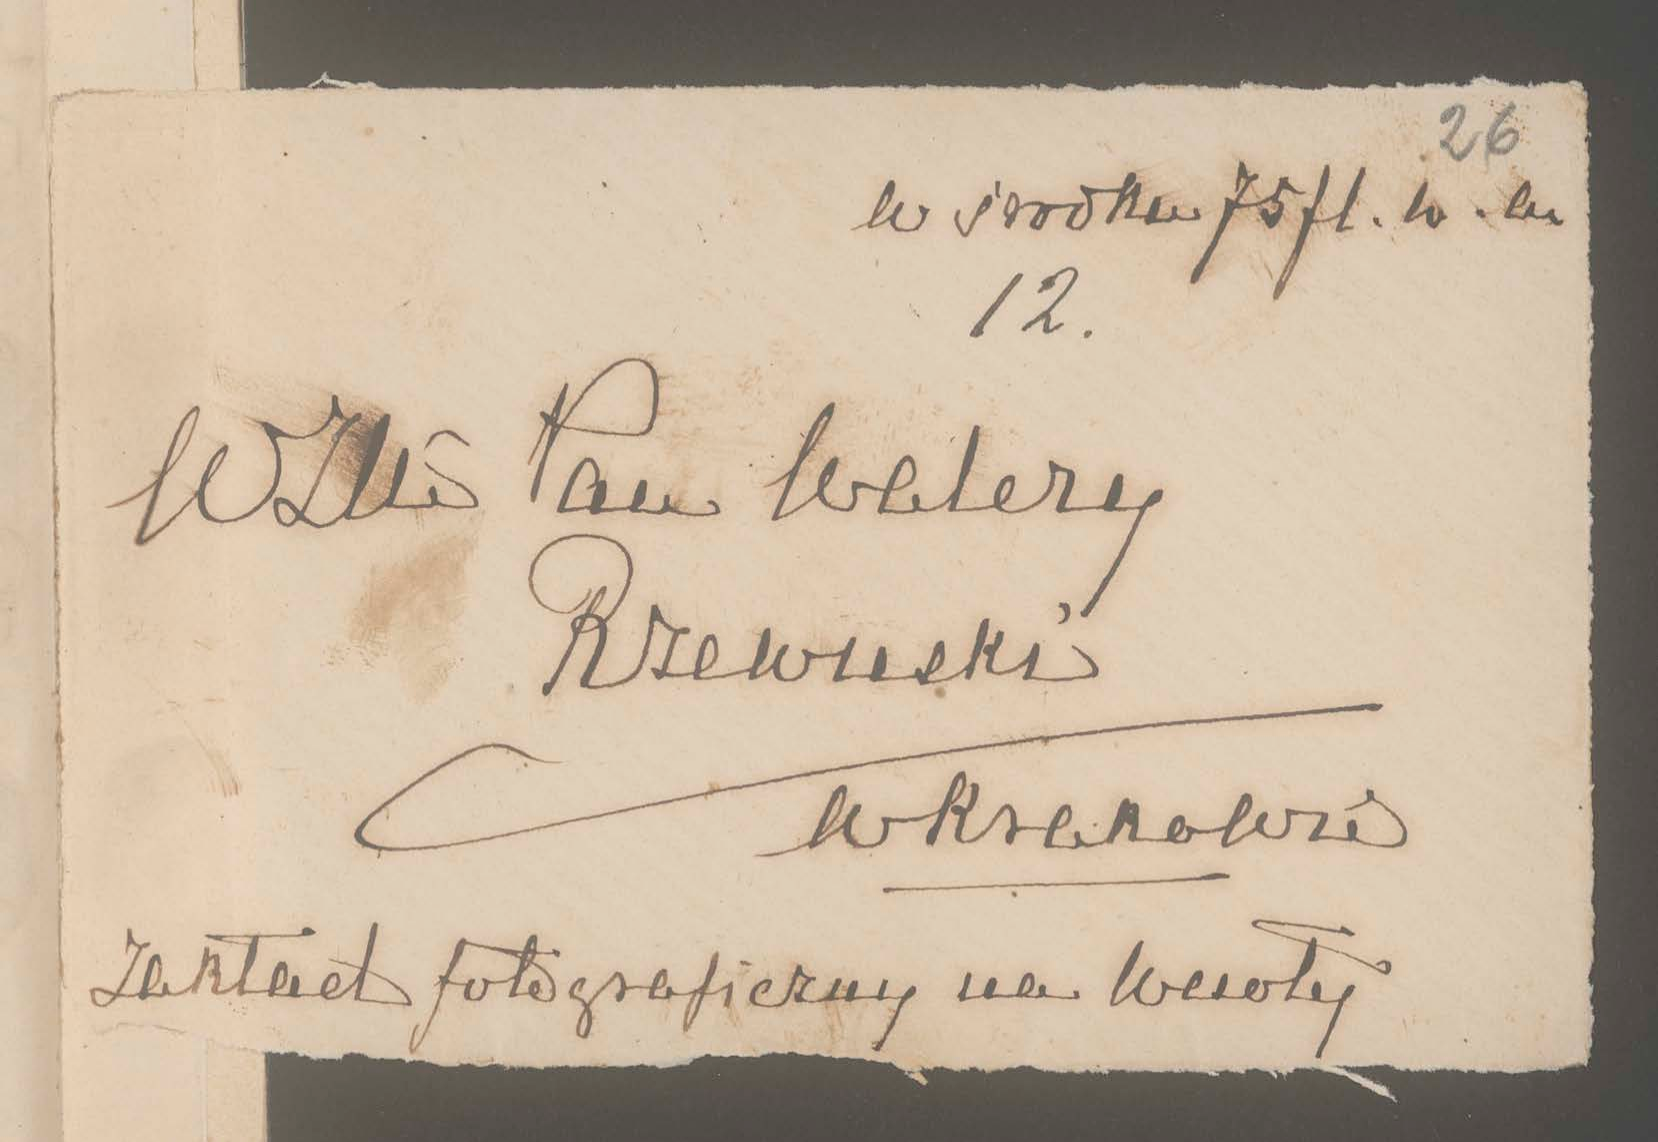 26
w środku 75 fl. w. a
12.
WJM Pan Walery
Rzewuski
w Krakowie
Zakład fotograficzny na Wesołej